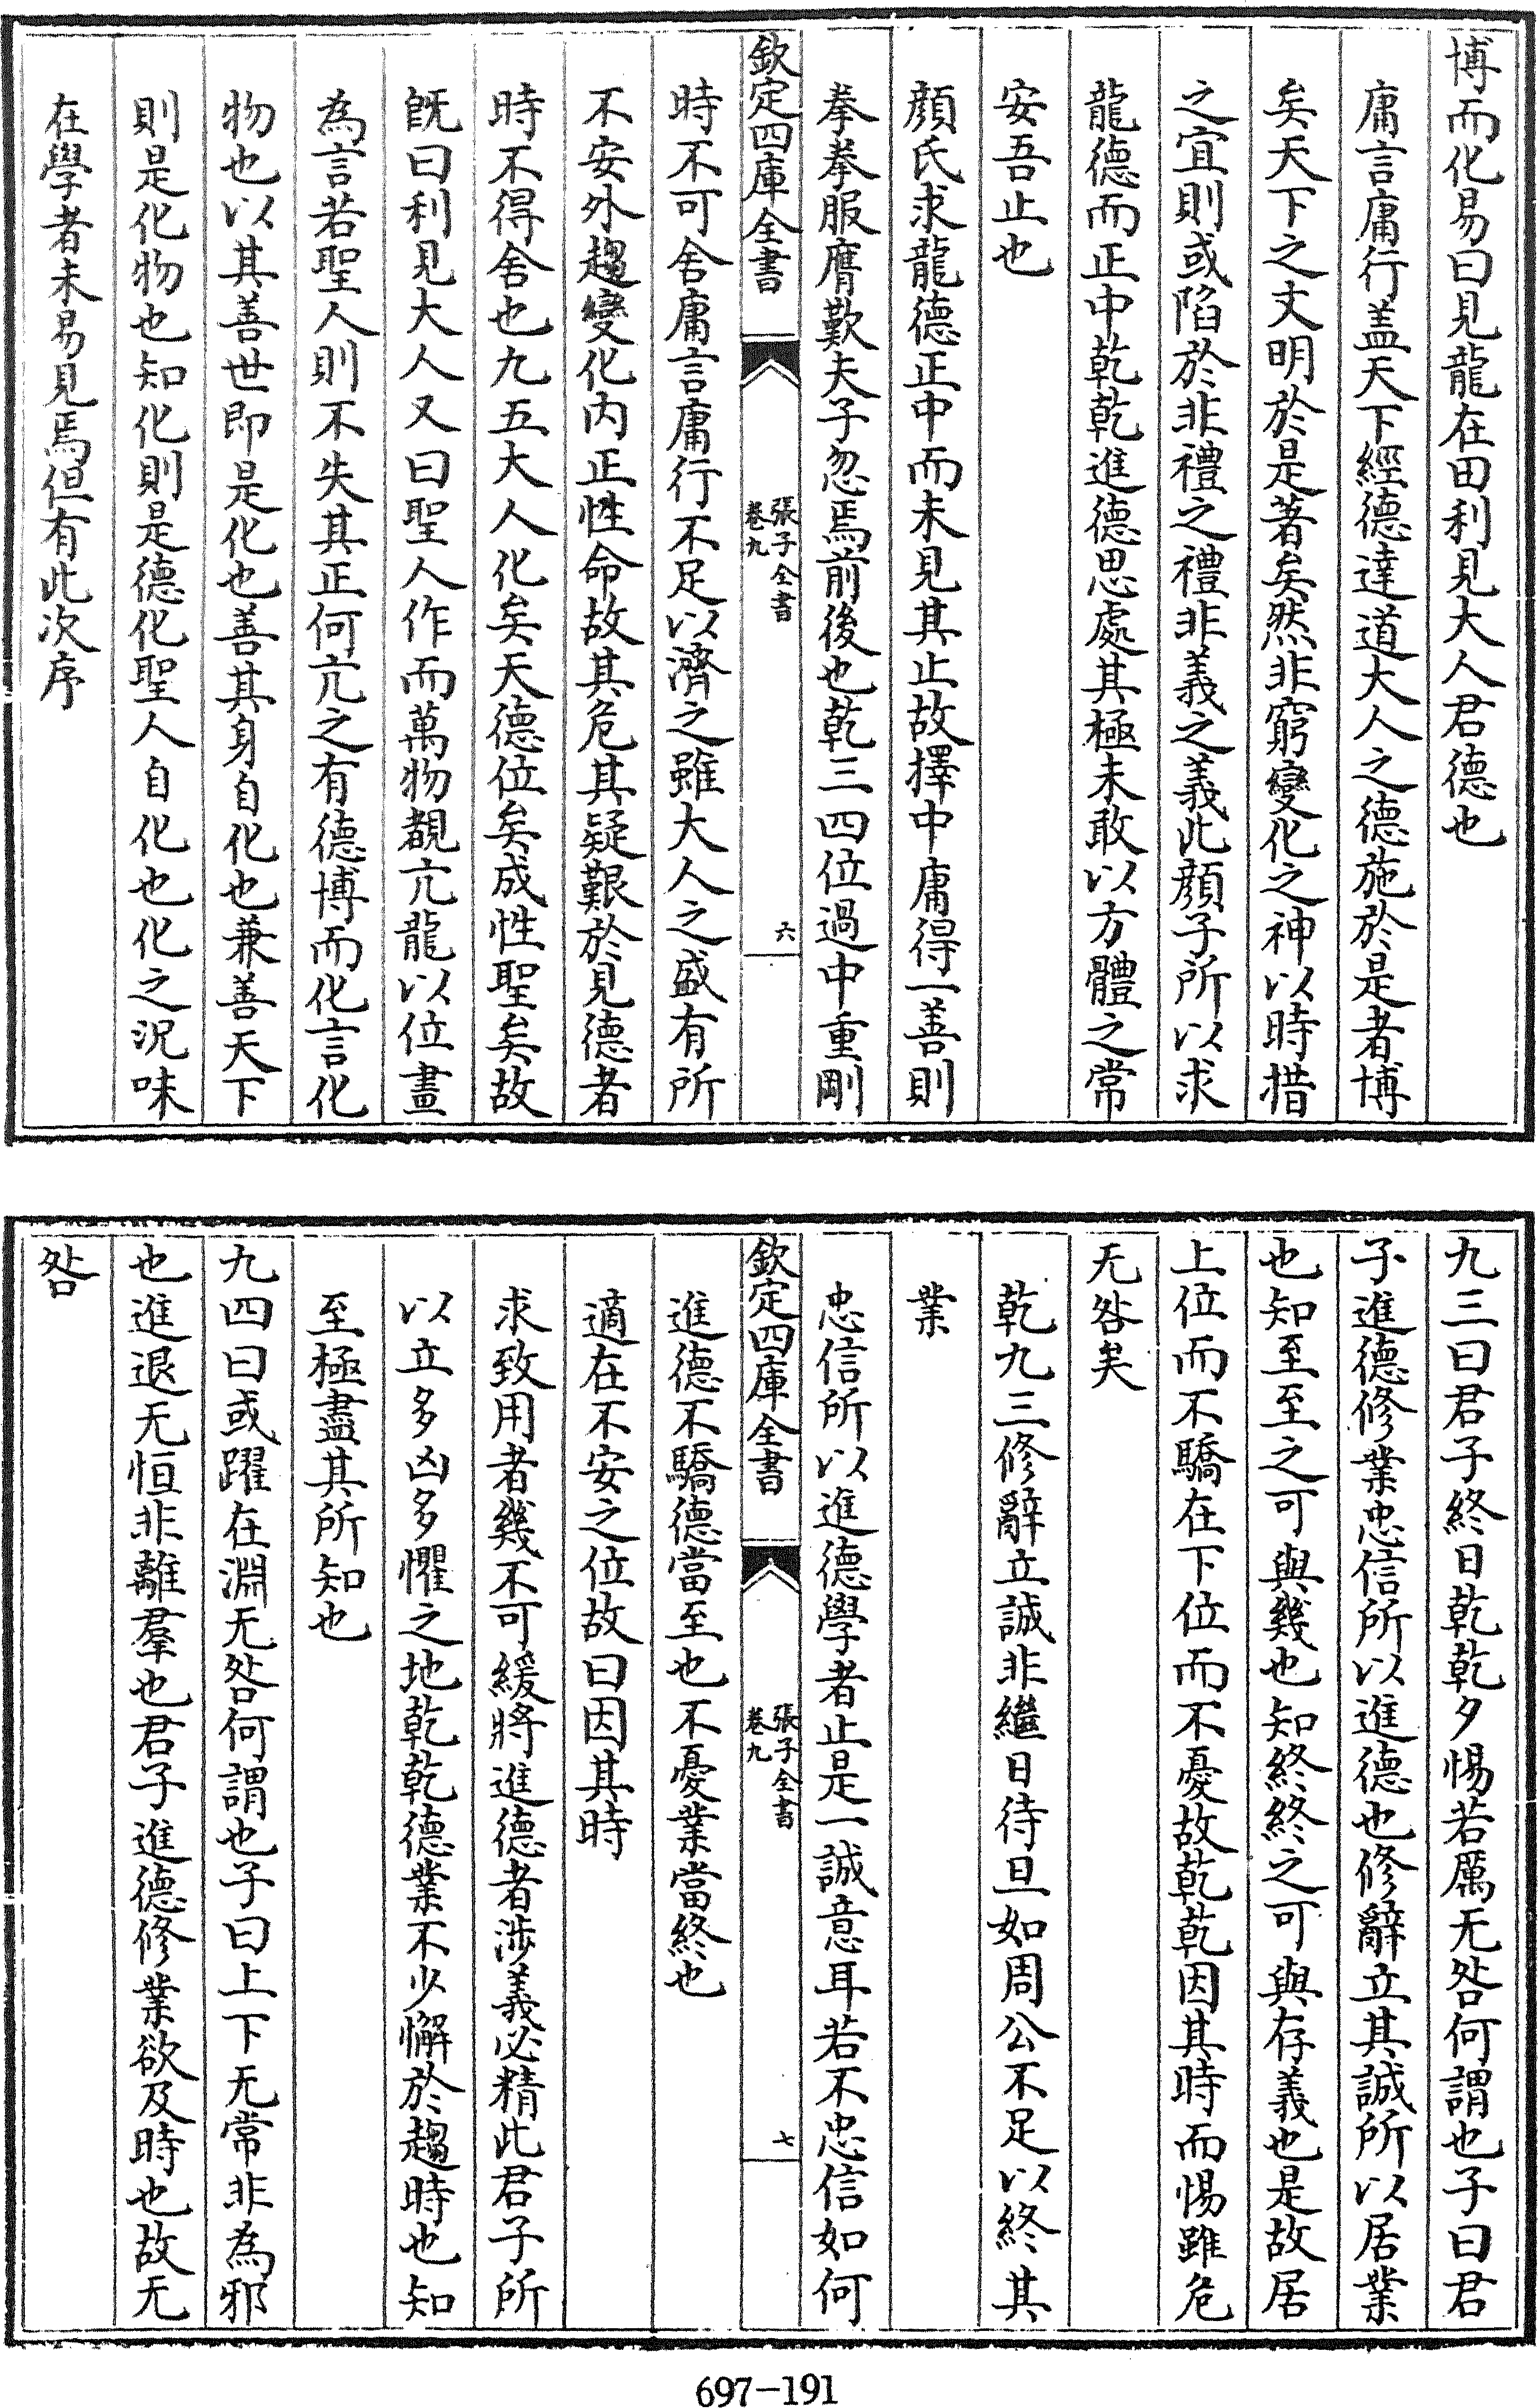 博而化易曰見龍在田利見大人君德也
庸言庸行盖天下經德達道大人之德施於是者博
矣天下之文明於是著矣然非窮變化之神以時措
之宜則或陷於非禮之禮非義之義此顔子所以求
龍德而正中乾乾進德思處其極未敢以方體之常
安吾止也
顔氏求龍德正中而未見其止故擇中庸得一善則
拳拳服膺歎夫子忽焉前後也乾三四位過中重剛
欽定四庫全書
張子全書
卷九
六
時不可舍庸言庸行不足以濟之雖大人之盛有所
不安外趨變化内正性命故其危其疑艱於見德者
時不得舍也九五大人化矣天德位矣成性聖矣故
旣曰利見大人又曰聖人作而萬物覩亢龍以位畫
為言若聖人則不失其正何亢之有德博而化言化
物也以其善世即是化也善其身自化也兼善天下
則是化物也知化則是德化聖人自化也化之況味
在學者未易見焉但有此次序
九三曰君子終日乾乾夕惕若厲无咎何謂也子曰君
子進德修業忠信所以進德也修辭立其誠所以居業
也知至至之可與幾也知終終之可與存義也是故居
上位而不驕在下位而不憂故乾乾因其時而惕雖危
无咎矣
乾九三修辭立誠非繼日待旦如周公不足以終其
業
忠信所以進德學者止是一誠意耳若不忠信如何
欽定四庫全書
張子全書
卷九
七
進德不驕德當至也不憂業當終也
適在不安之位故曰因其時
求致用者幾不可緩將進德者涉義必精此君子所
以立多凶多懼之地乾乾德業不少懈於趨時也知
至極盡其所知也
九四曰或躍在淵无咎何謂也子曰上下无常非為邪
也進退无恒非離羣也君子進德修業欲及時也故无
咎
697-191